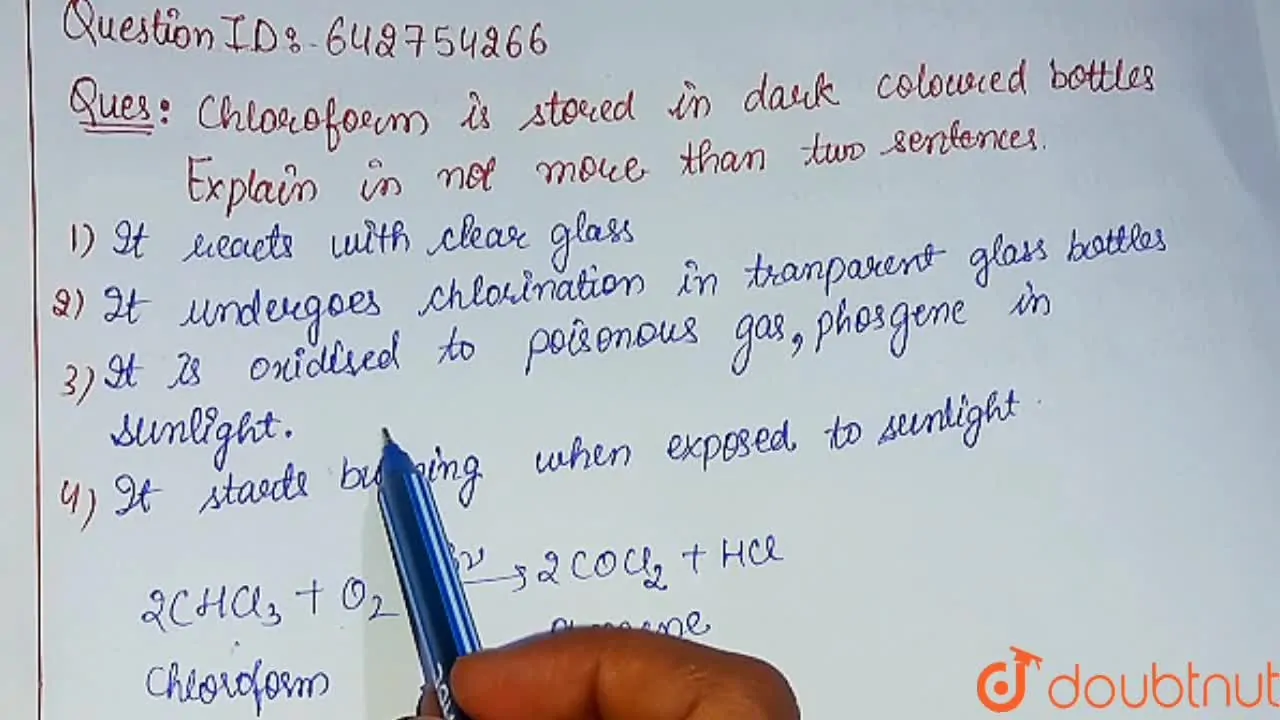 Question ID:- 642754266
Ques: Chloroform is stored in dark coloured bottles
Explain in not more than two sentences.
1) It reacts with clear glass
2) It undergoes chlorination in tranparent glass bottles
3) It is oxidised to poisonous gas, phosgene in
sunlight.
4) It starts when exposed to sunlight.
2CHCl3 + O2 → 2COCl2 + HCl
Chloroform
doubtnut